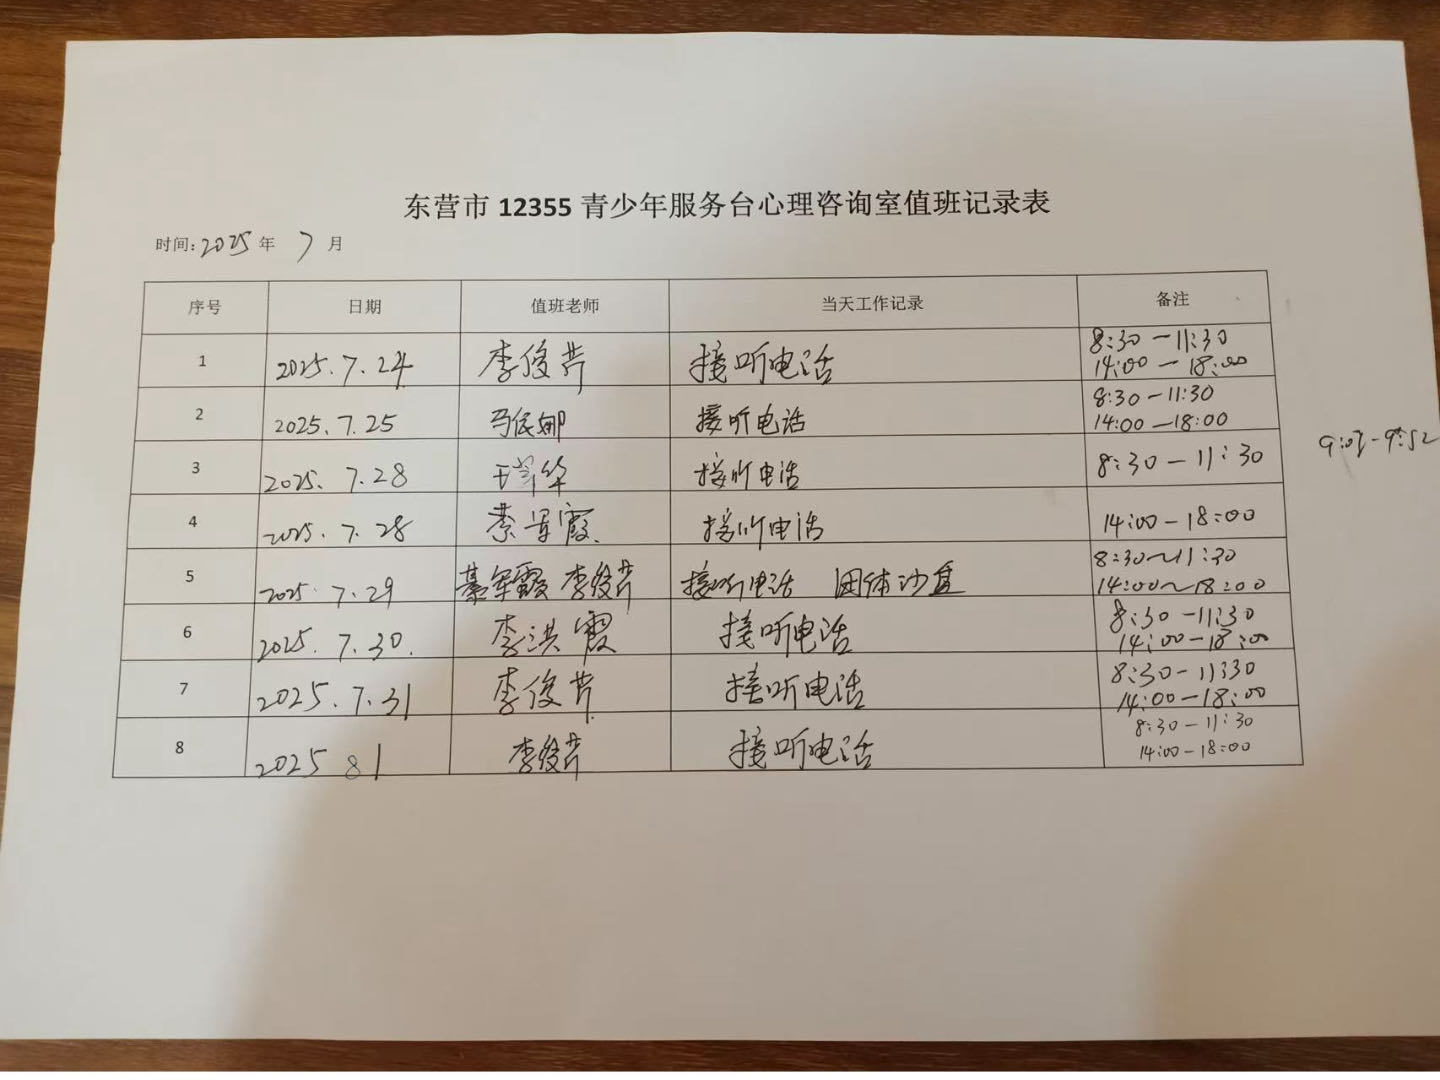 东营市 12355 青少年服务台心理咨询室值班记录表
时间:2025 年 7 月
序号 日期 值班老师 当天工作记录 备注
1 2025.7.24 李俊芹 接听电话 8:30-11:30
14:00-18:00
2 2025.7.25 接听电话 8:30-11:30
14:00-18:00
3 2025.7.28 接听电话 8:30-11:30
4 2025.7.28 接听电话 14:00-18:00
5 2025.7.29 綦军霞 李俊芹 接听电话 团体沙盘 8:30~11:30
14:00~18:00
6 2025.7.30. 李洪霞 接听电话 8:30-11:30
14:00-18:00
7 2025.7.31 李俊芹 接听电话 8:30-11:30
14:00-18:00
8 2025 8 1 李俊芹 接听电话 8:30-11:30
14:00-18:00